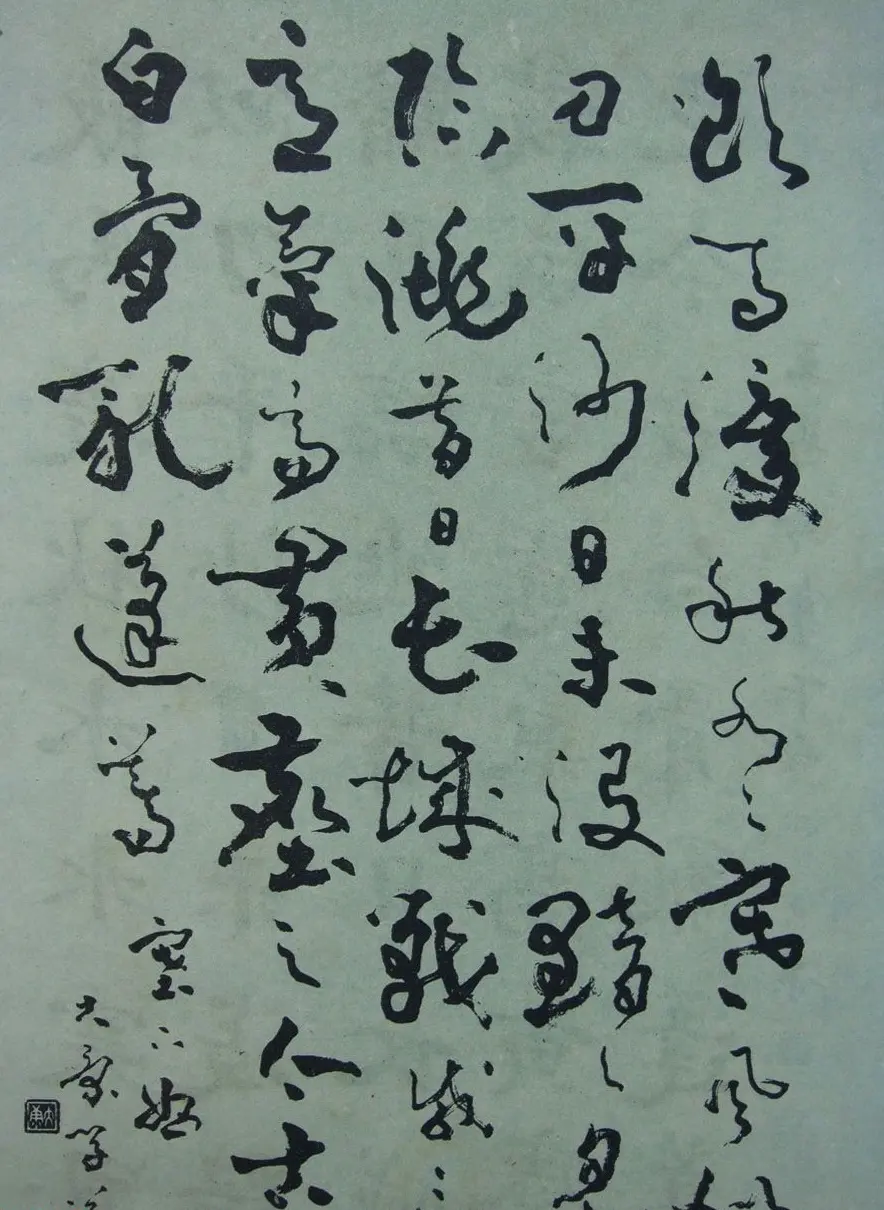 飲馬渡秋水〻寒風似
刀平沙日未没黯〻見
臨洮昔日長城戰咸言
意氣高黄塵足今古
白骨亂蓬蒿
塞下曲
大康學